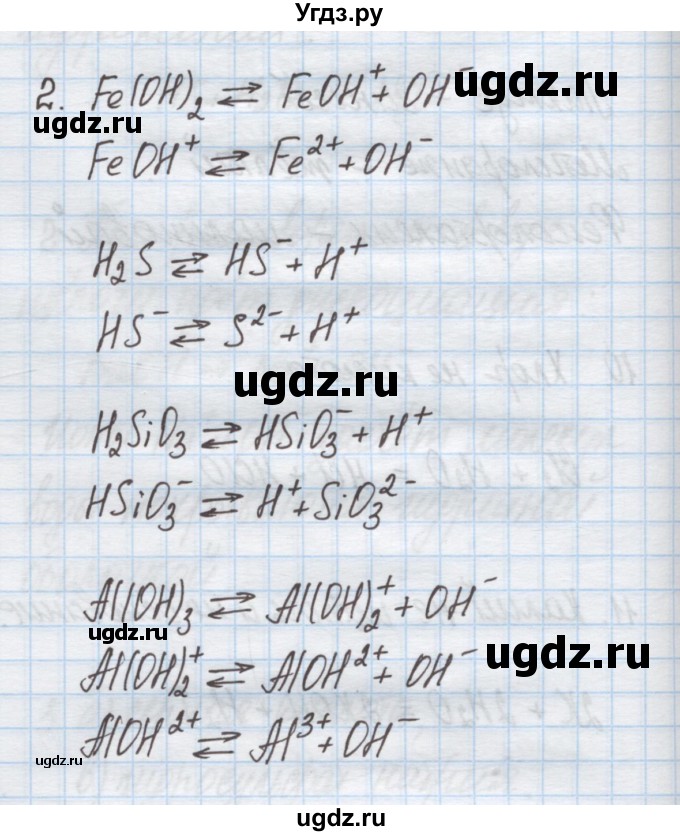 Угдз.ру
2. Fe(OH)₂ ⇄ FeOH⁺ + OH⁻
ugdz.ru
FeOH⁺ ⇄ Fe²⁺ + OH⁻
H₂S ⇄ HS⁻ + H⁺
HS⁻ ⇄ S²⁻ + H⁺
ugdz.ru
H₂SiO₃ ⇄ HSiO₃⁻ + H⁺
HSiO₃⁻ ⇄ H⁺ + SiO₃²⁻
Al(OH)₃ ⇄ Al(OH)₂⁺ + OH⁻
ugdz.ru
Al(OH)₂⁺ ⇄ AlOH²⁺ + OH⁻
ugdz.ru
AlOH²⁺ ⇄ Al³⁺ + OH⁻
ugdz.ru
ugdz.ru
ugdz.ru